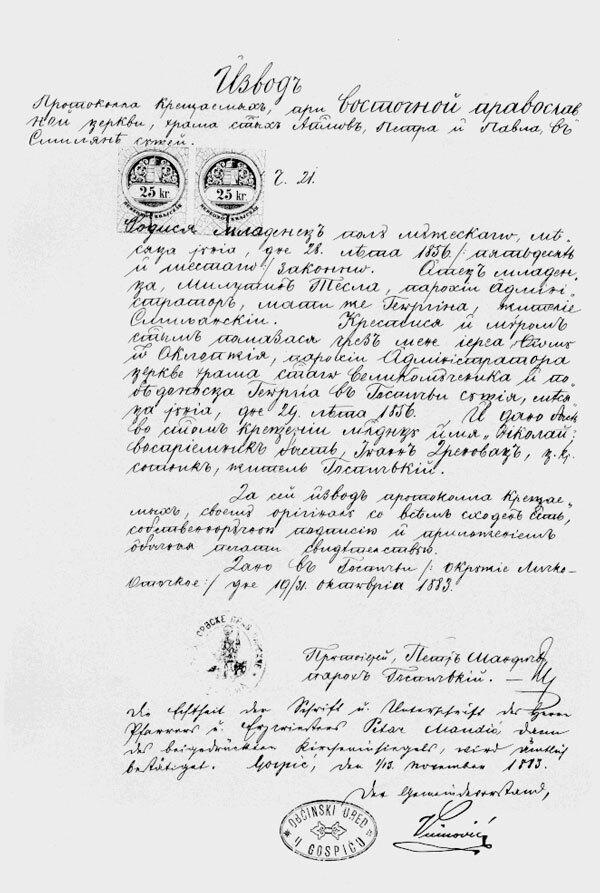 Изводъ
Протокола крещаемыхъ, при восточной православ
ной церкви, храма стыхъ Апловъ, Петра и Павла, въ
Смилянѣ сущей.
25 kr. 25 kr.
Ч. 21.
Родися младенецъ пола мужескаго, мѣ-
сяца іунія, дне 28. лѣта 1856. /: пятьдесять
и шестаго :/ законно. Отецъ младен-
ца, Милутинъ Тесла, парохіи Админи-
страторъ, мати же Георгина, жителіе
Смилянскіи. Крестися и мѵромъ
стымъ помазася чрезъ мене іереа
парохіи Администратора
церкве храма стаго Великомученика и по-
бѣдоносца Георгіа въ Госпичи сущія, мѣся
ца іунія, дне 29. лѣта 1856. И дано бысть
во стомъ крещеніи младнцу имя „Николай:
воспріемникъ бысть, Іоаннъ Дреновацъ, ц. кр.
сотникъ, житель Госпичкій.
За сей изводъ протокола крещае-
мыхъ, своему оригіналу со всѣмъ сходенъ быть,
собственноручной подписію и приложеніемъ
обычнія печати свидѣтельствую.
Дано въ Госпичи /: окружіе Личко-
Оточкое :/ дне 19/31. октоврія 1883.
СРБСКЕ ПРАВ
Протоіерей, Петръ Мандичъ
парохъ Госпичкій.
Die Echtheit der Schrift u. Unterschrift des Herrn
Pfarrers u. Erzpriesters Petar Mandić, dann
des beigedrückten Kirchensiegels, wird ämtlich
bestätiget. Gospić, den 1/13. November 1883.
Der Gemeindevorstand,
OBĆINSKI URED
U GOSPIĆU